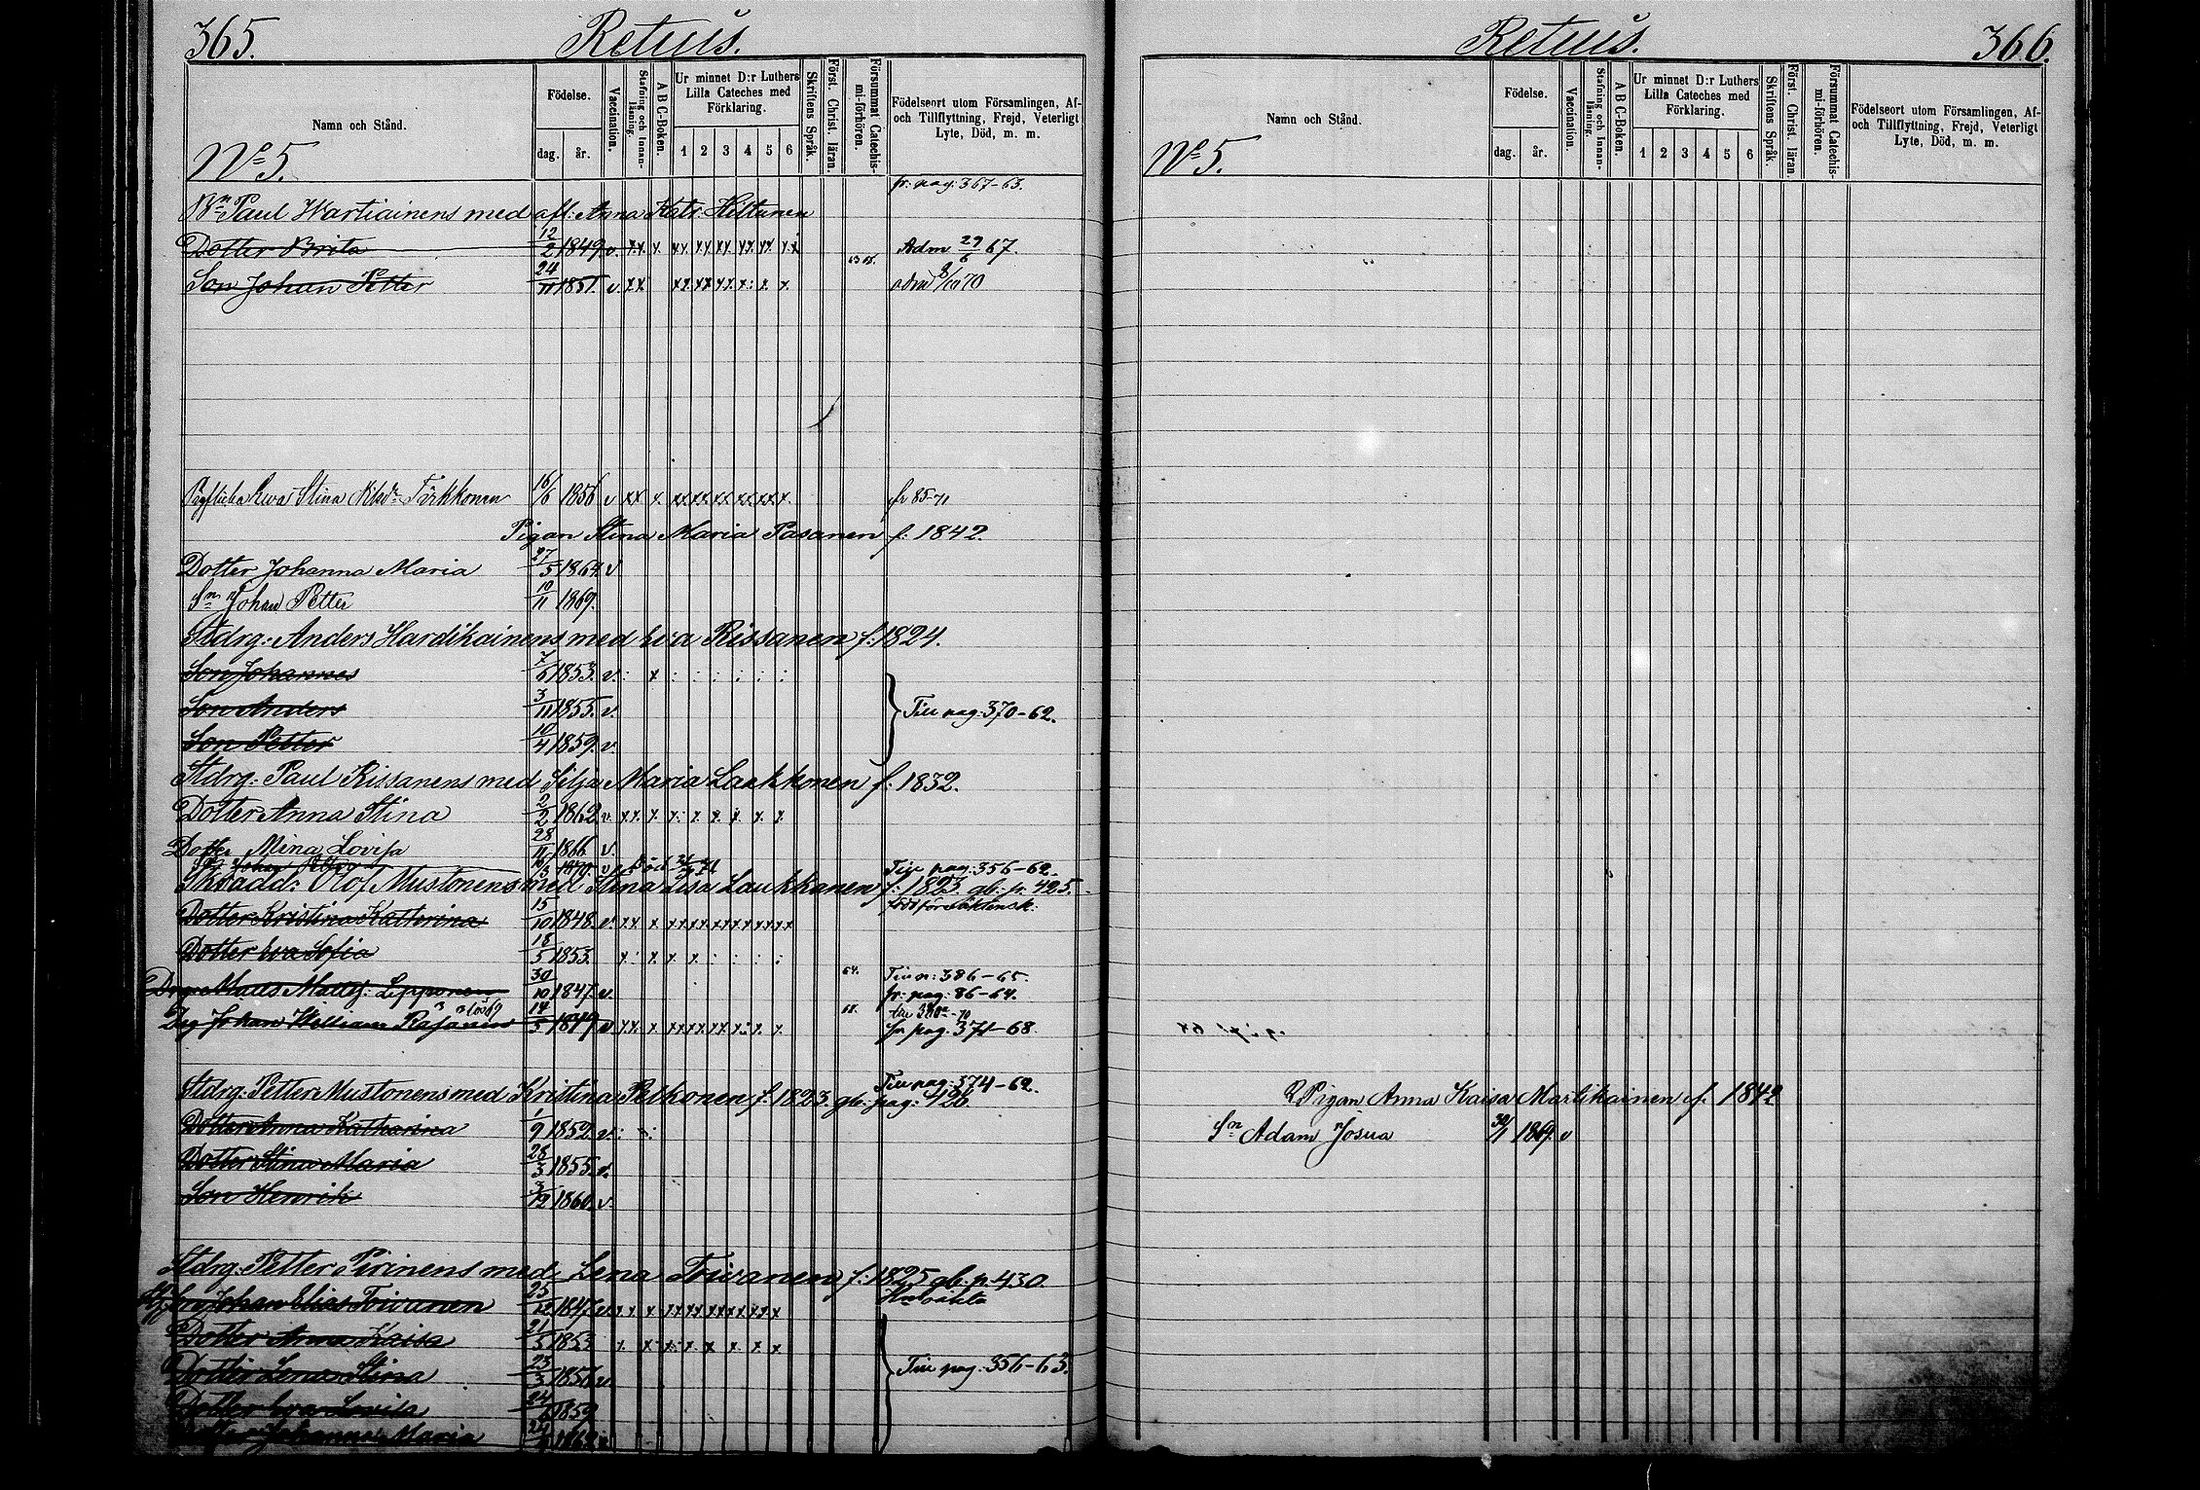 365. Retuis.
Namn och Stånd.
Födelse.
dag. år.
Vaccination.
Stafning och Innan-läsning.
A B C-Boken.
Ur minnet D:r Luthers Lilla Cateches med Förklaring.
1 2 3 4 5 6
Skriftens Språk.
Först. Christ. läran.
Försummat Catechis-mi-förhören.
Födelseort utom Församlingen, Af- och Tillflyttning, Frejd, Veterligt Lyte, Död, m. m.
No 5.
fr: pag: 367-63.
Bn Paul Wartiainens med afl: Anna Kats: Hiltunen
Dotter Brita 12/2 1849. v. Adm 29/6 67.
Son Johan Petter 24/11 1851. v. adm 8/10 70
Eva Stina Tirkkonen 16/6 1856 v fr 85-71
Pigan Stina Maria Pasanen f: 1842.
Dotter Johanna Maria 27/5 1864. v
Sn Johan Petter 10/11 1869.
Stdrg: Anders Hardikainens med Eva Rissanen f: 1824.
Son Johannes 7/6 1853. v.
Son Anders 3/11 1855. v. Till pag: 370-62.
Son Petter 10/4 1859. v.
Stdrg: Paul Rissanens med Silja Maria Laukkonen f: 1832.
Dotter Anna Stina 2/2 1862 v.
Dotter Mina Lovisa 28/11 1866 v.
Johan
Till pag: 356-62.
Skrädd: Olof Mustonens med Stina Lisa Laukkanen f: 1823. gb: p. 425.
Dotter Kristina Katterina 15/10 1848. v. född för äktensk:
Dotter Eva Sofia 18/5 1853.
Till p: 386-65.
Drg Matts Matts: Lipponen 30/10 1847. v. 64. fr: pag: 86-64.
Drg Johan William Rasanen 14/5 1849 v 68. fr pag: 371-68.
Till pag: 374-62.
Stdrg: Petter Mustonens med Kristina Pelkonen f: 1823. gb: pag: 426.
Dotter Anna Katharina 1/9 1852. v.
Dotter Stina Maria 28/3 1855. v.
Son Henrik 3/12 1860. v.
Stdrg: Petter Pirinens med Lena Toivanen f: 1825 gb: p. 430.
Son Johan Elias Toivanen 25/12 1847 v. H: oäkta
Dotter Anna Kaisa 21/5 1853
Dotter Lena Stina 23/3 1856 v. Till pag: 356-63.
Dotter Eva Lovisa 24 1859
Dotter Johanna Maria 1862
Retuis. 366.
Namn och Stånd.
Födelse.
dag. år.
Vaccination.
Stafning och Innan-läsning.
A B C-Boken.
Ur minnet D:r Luthers Lilla Cateches med Förklaring.
1 2 3 4 5 6
Skriftens Språk.
Först. Christ. läran.
Försummat Catechis-mi-förhören.
Födelseort utom Församlingen, Af- och Tillflyttning, Frejd, Veterligt Lyte, Död, m. m.
No 5.
Pigan Anna Kaisa Martikainen f. 1842
Sn Adam Josua 1869. v